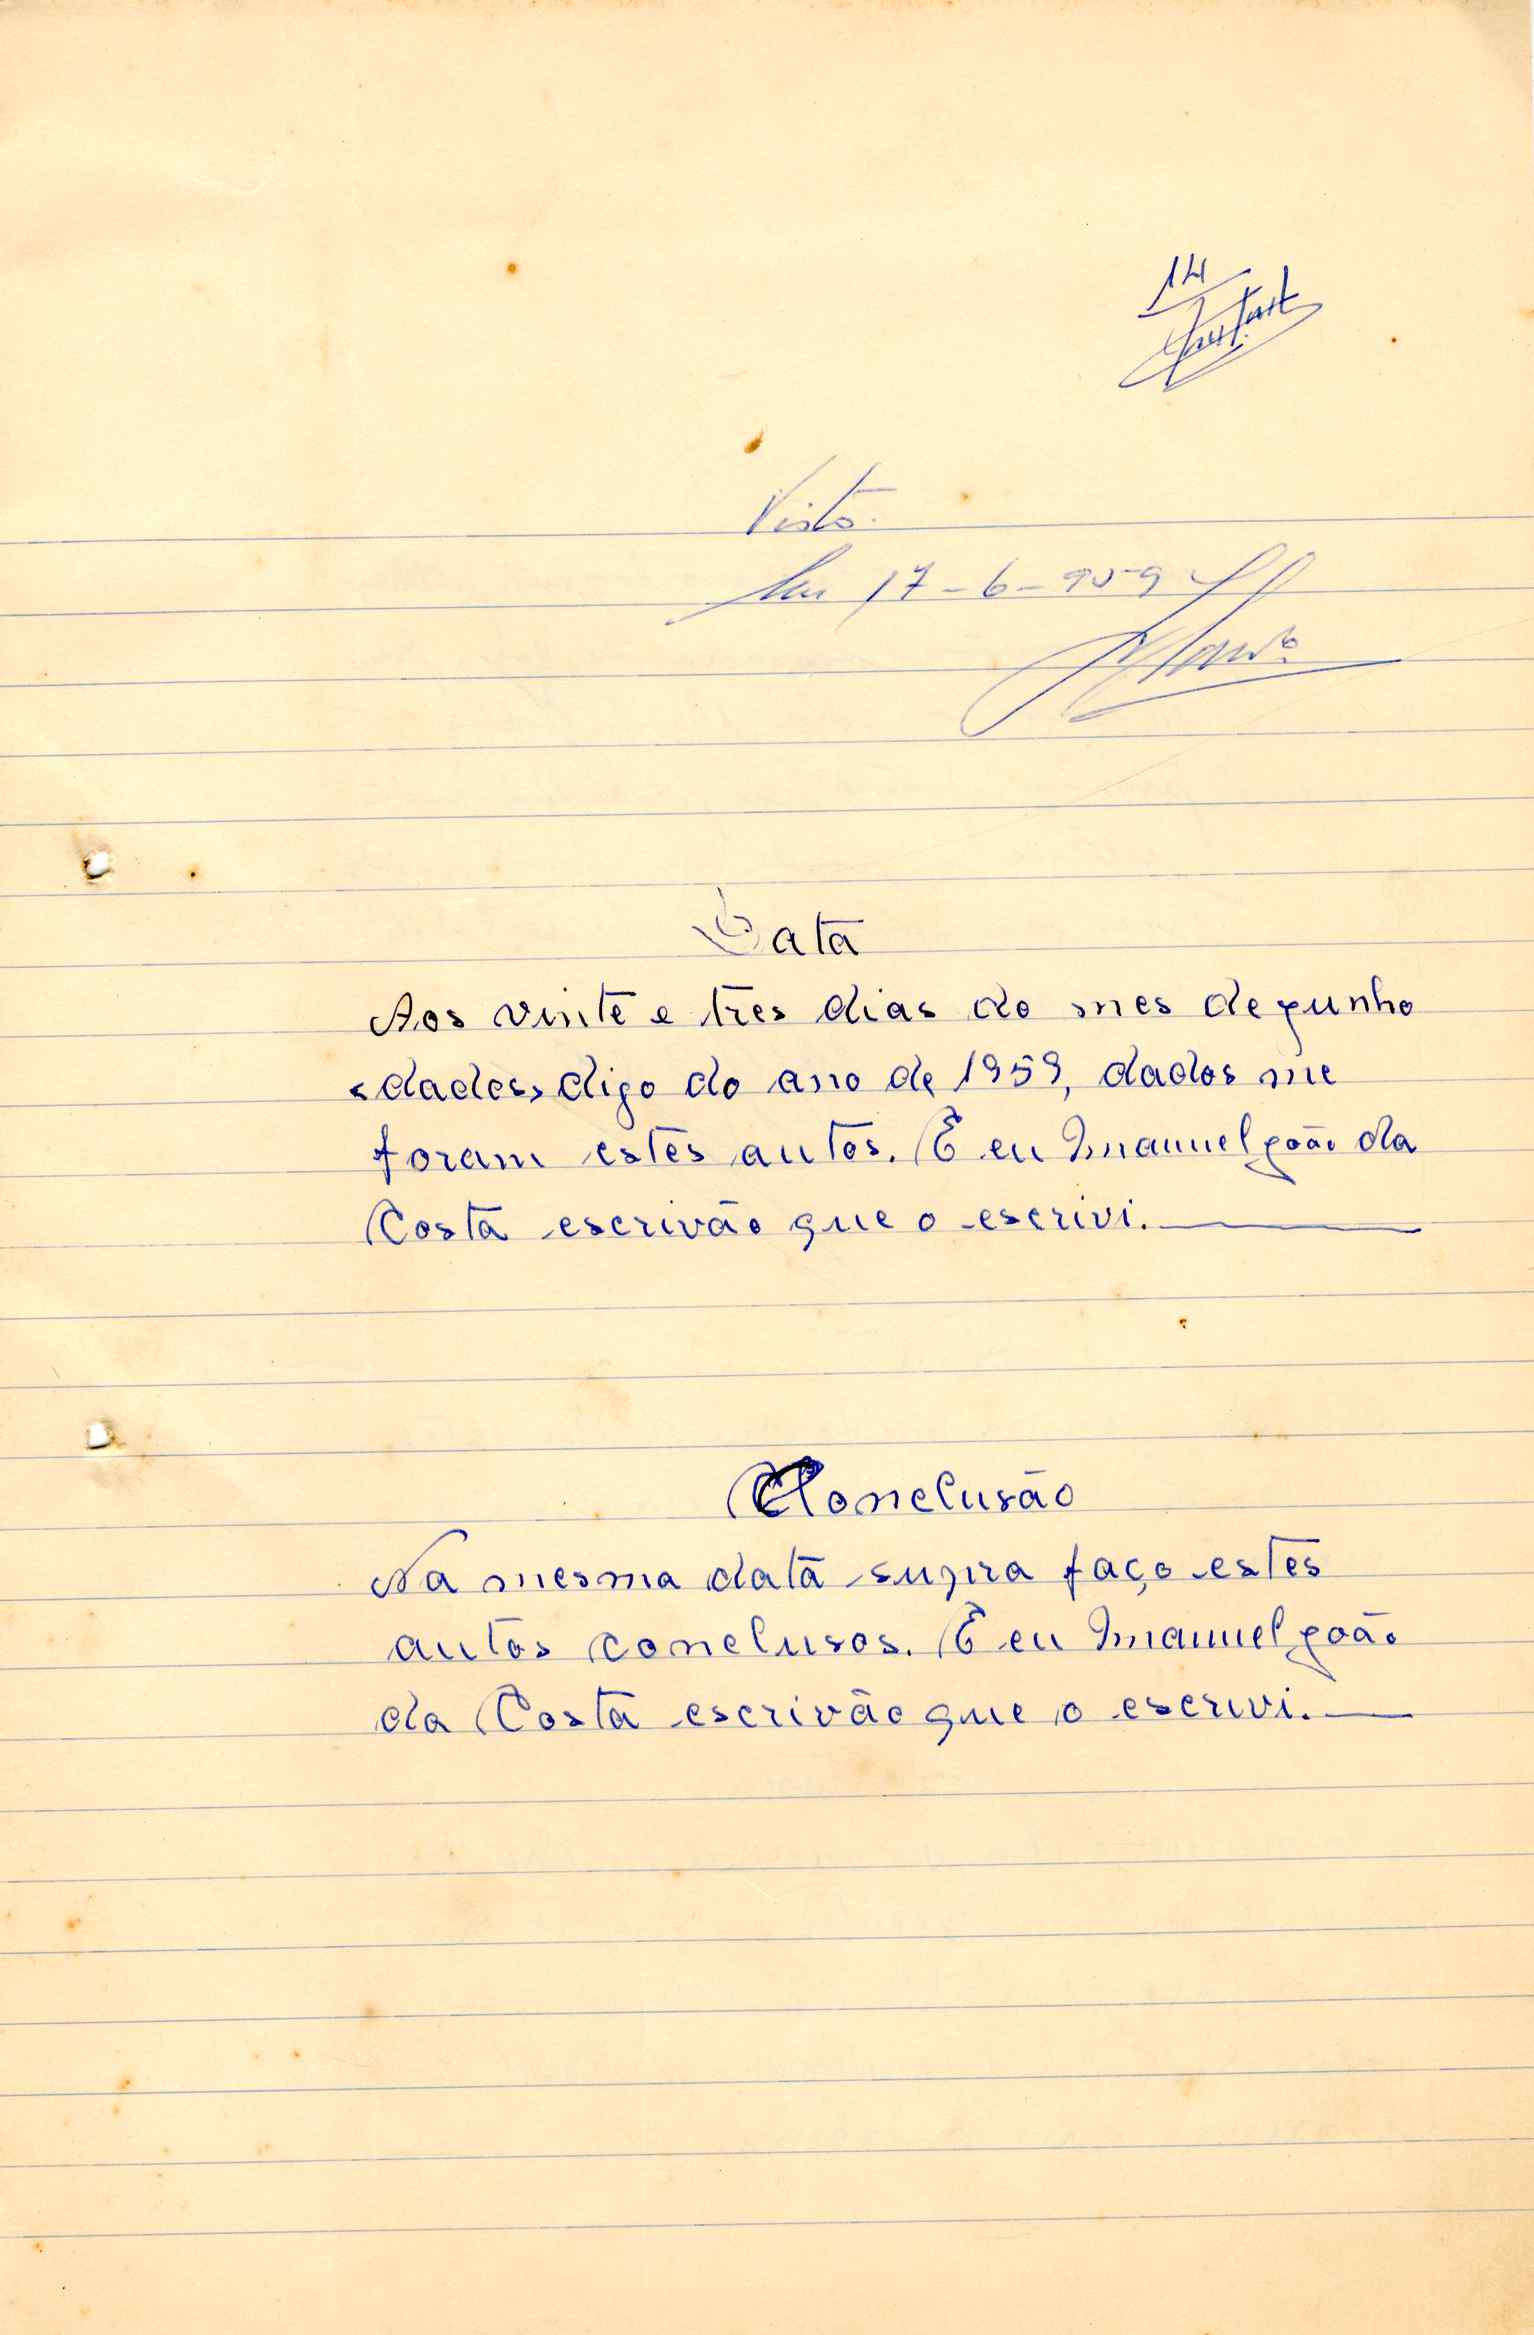 14
Visto.
Em 17-6-959
Data
Aos vinte e tres dias do mes de junho
"dados" digo do ano de 1959, dados me
foram estes autos. E eu Imanuel João da
Costa escrivão que o escrivi.
Conclusão
Na mesma data supra faço estes
autos conclusos. E eu Imanuel João
da Costa escrivão que o escrivi.